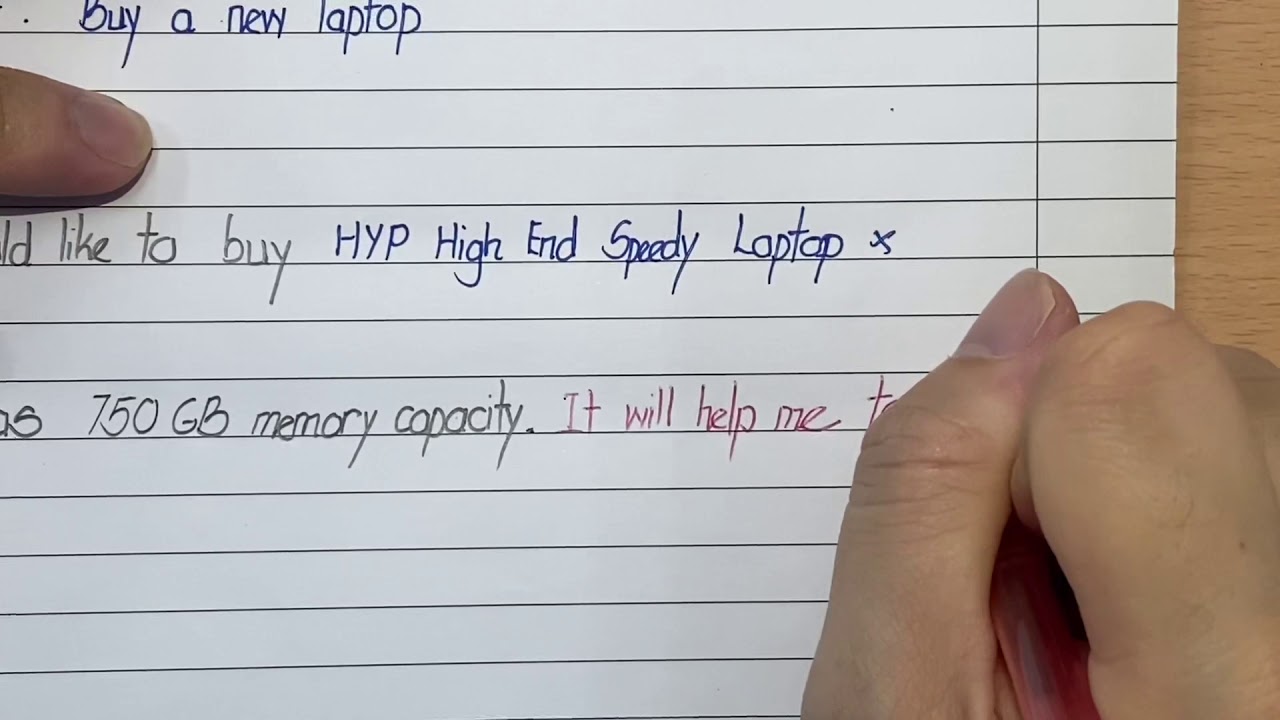 . Buy a new laptop
ld like to buy HYP High End Speedy Laptop *
as 750 GB memory capacity. It will help me to